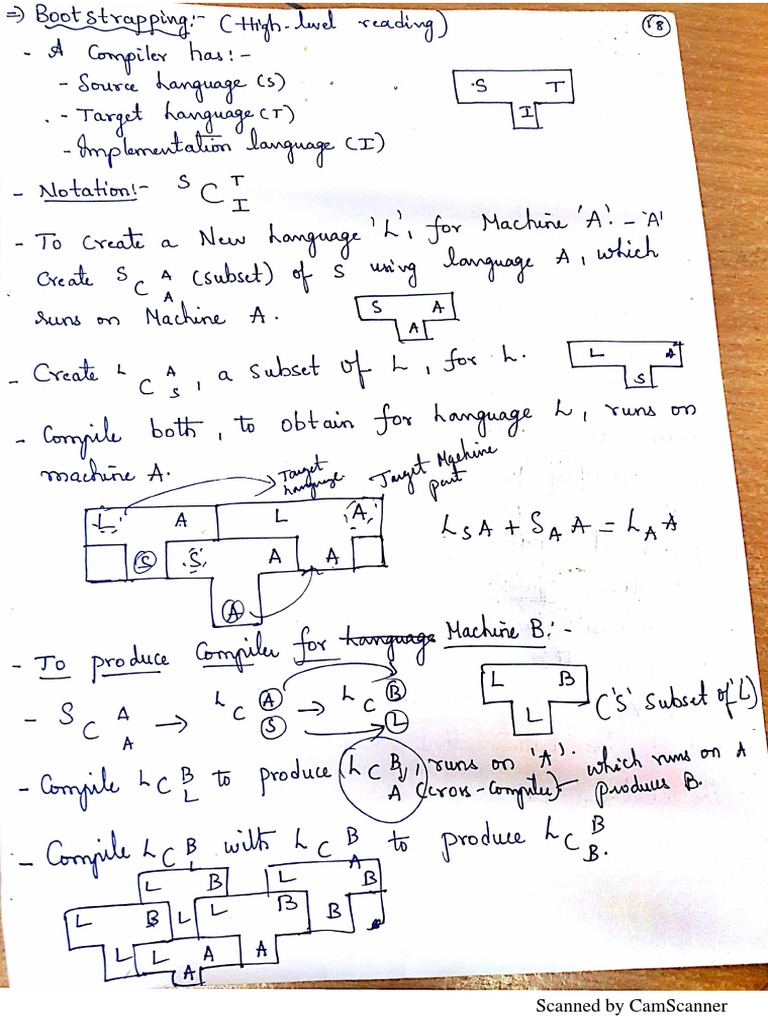 ⇒ Bootstrapping:- (High-level reading) 18
- A Compiler has:-
- Source Language (S)
- Target Language (T)
- Implementation language (I)
S T
I
- Notation:- S C T I
- To Create a New Language 'L', for Machine 'A'. - 'A'
Create S C A A (subset) of S using language A, which
runs on Machine A.
S A
A
- Create L C A S, a subset of L, for L.
L A
S
- Compile both, to obtain for Language L, runs on
machine A.
Target Language
Target Machine part
L A L A
S S A A
A
L S A + S A A = L A A
- To produce Compiler for Language Machine B:-
- S C A A → L C A S → L C B L
L B
L
('S' subset of 'L')
- Compile L C B L to produce L C B A, runs on 'A'.
(cross-compiler) - which runs on A
produces B.
- Compile L C B L with L C B A to produce L C B B.
L B L B
L B L L B B
L L A A
A
Scanned by CamScanner